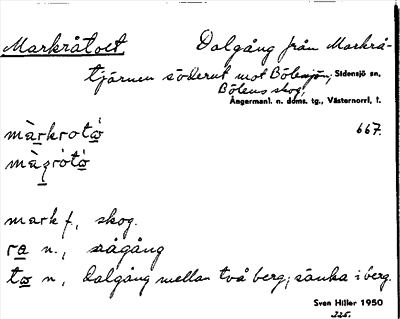 Markråtoet Dalgång från Markrå-
tjärnen söderut mot Bölessjön, Sidensjö sn,
Bölens skog, Ångermanl. n. doms. tg., Västernorrl, l.
màrkrotȯ 667.
màg̣rȯ́tȯ́
mark f., skog.
ra n., rågång
to n, dalgång mellan två berg; sänka i berg.
Sven Hiller 1950
225.